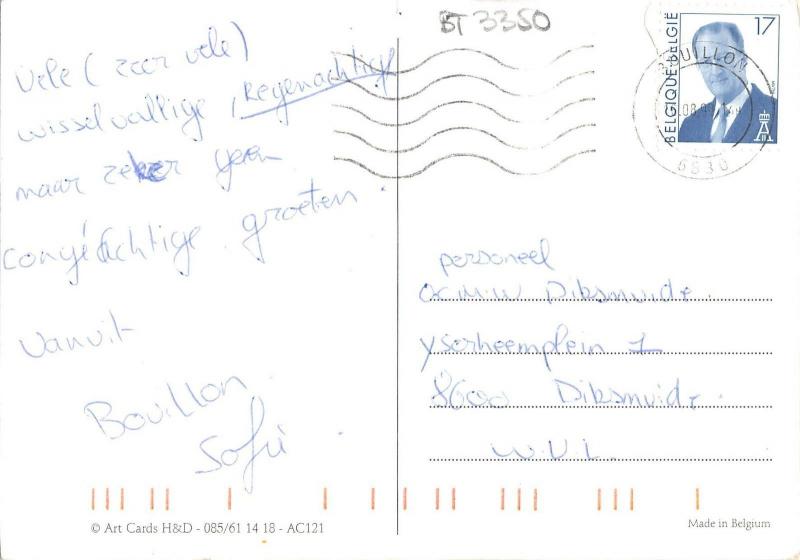 BT 3350
Vele (zeer vele)
wisselvallige, Regenachtige
maar zeker geen
congéachtige groeten.
Vanuit
Bouillon
Sofie.
17
BELGIQUE-BELGIË
BOUILLON
6830
personeel
OCMW Diksmuide.
Yserheemplein 1
8600 Diksmuide
W.VL.
© Art Cards H&D - 085/61 14 18 - AC121
Made in Belgium